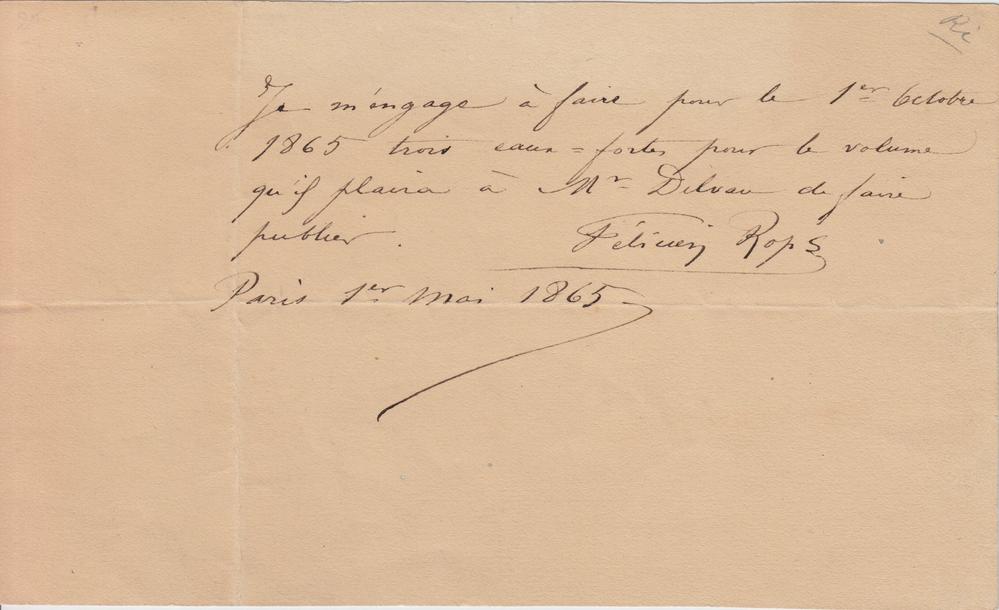 Ri
Je m'engage à faire pour le 1er Octobre
1865 trois eaux=fortes pour le volume
qu'il plaira à Mr Delvau de faire
publier.
Félicien Rops
Paris 1er Mai 1865